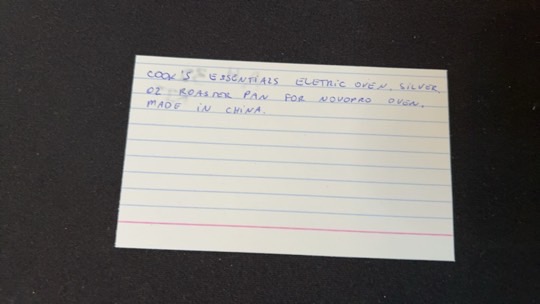 COOK'S ESSENTIALS ELETRIC OVEN, SILVER,
02 ROASTER PAN FOR NOVOPRO OVEN.
MADE IN CHINA.